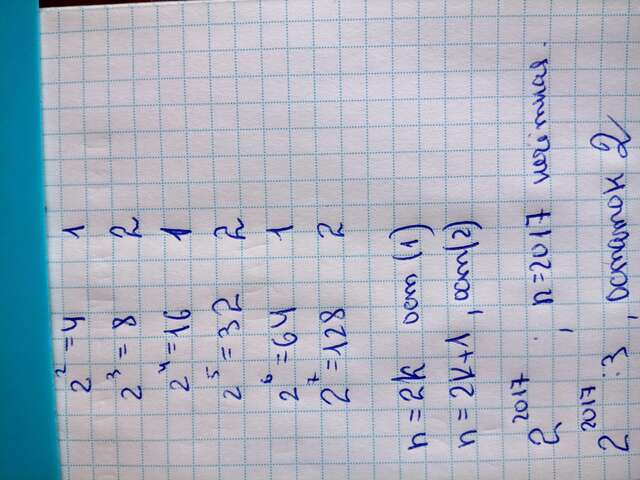 2² = 4 1
2³ = 8 2
2⁴ = 16 1
2⁵ = 32 2
2⁶ = 64 1
2⁷ = 128 2
n = 2k ост (1)
n = 2k+1, ост(2)
2²⁰¹⁷, n = 2017 нечётная.
2²⁰¹⁷ : 3, остаток 2